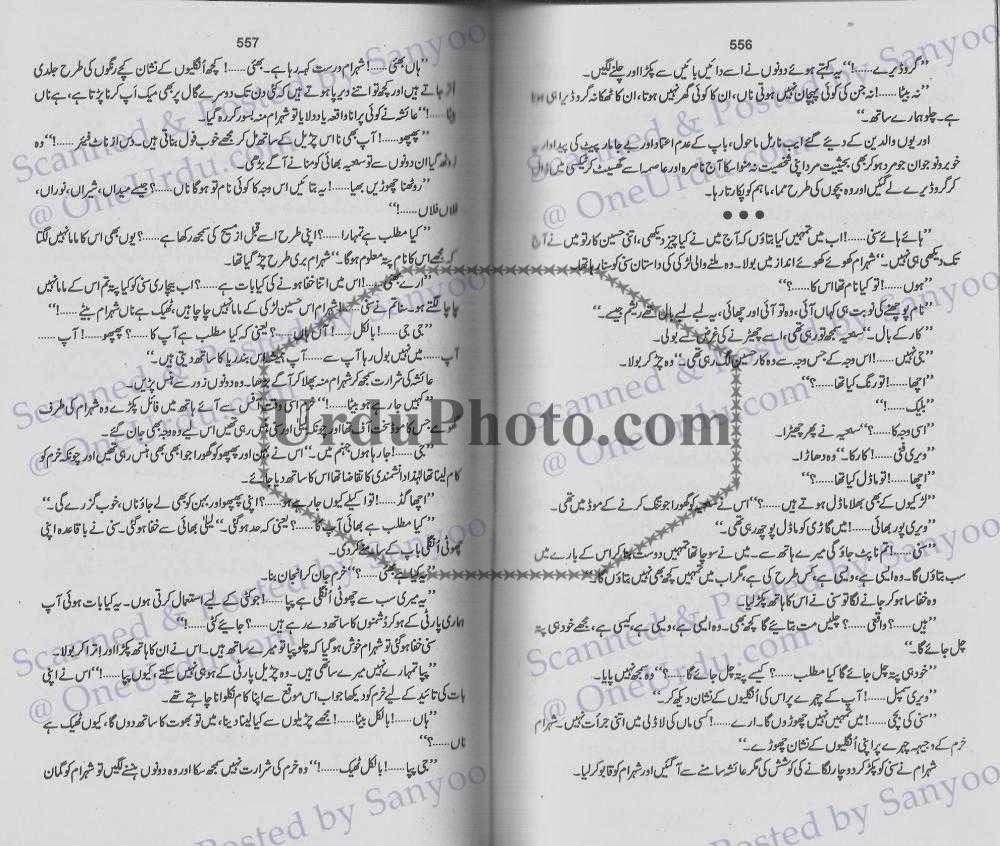 556
”گروڈیرے......!“ یہ کہتے ہوئے دونوں نے اسے دائیں بائیں سے پکڑا اور چلنے لگیں۔
”نہ بیٹا......! نہ جن کی کوئی پہچان نہیں ہوتی ناں، ان کا کوئی گھر نہیں ہوتا، ان کا ٹھکانہ گروڈیرا ہی ہوتا
ہے۔ چلو ہمارے ساتھ۔“
اور یوں والدین کے دیئے گئے ایب نارمل ماحول، باپ کے عدم اعتماد اور بے جا مار پیٹ کی پیداوار یہ
خوبرو نوجوان جو مرد ہو کر بھی بحیثیت مرد اپنی شخصیت نہ منوا سکا آج ناصرہ اور عاصمہ اسے گھسیٹ کر ٹیکسی میں ڈال
کر گروڈیرے لے گئیں اور وہ بچوں کی طرح مما، ماہم کو پکارتا رہا۔
●●●
”ہائے ہائے سنی......! اب میں تمہیں کیا بتاؤں کہ آج میں نے کیا چیز دیکھی، اتنی حسین کار تو میں نے آج
تک دیکھی ہی نہیں۔“ شہرام کھوئے کھوئے انداز میں بولا۔ وہ ملنے والی لڑکی کی داستان سنی کو سنا رہا تھا۔
”ہوں......! تو کیا نام تھا اس کا......؟“
”نام پوچھنے کی نوبت ہی کہاں آئی، وہ تو آئی اور چھائی، یہ لمبے لمبے بال تھے ریشم جیسے۔“
”کار کے بال۔“ سعیہ سمجھ تو رہی تھی، اسے چھیڑنے کی غرض سے بولی۔
”جی نہیں......! اس وجہ کے جس وجہ سے وہ کار حسین لگ رہی تھی۔“ وہ چڑ کر بولا۔
”اچھا......! تو رنگ کیا تھا......؟“
”بلیک......!“
”اسی وجہ کا......؟“ سعیہ نے پھر چھیڑا۔
”ویری فنی......! کار کا۔“ وہ دھاڑا۔
”اچھا......! تو ماڈل کیا تھا......؟“
”لڑکیوں کے بھی بھلا ماڈل ہوتے ہیں......؟“ اس نے سعیہ کو گھورا جو تنگ کرنے کے موڈ میں تھی۔
”ویری پور بھائی......! میں گاڑی کو ماڈل پوچھ رہی تھی۔“
”سنی......! تم نا پٹ جاؤ گی میرے ہاتھ سے۔ میں نے سوچا تھا تمہیں دوست بنا کر اس کے بارے میں
سب بتاؤں گا۔ وہ ایسی ہے، ویسی ہے، کس طرح کی ہے، مگر اب میں تمہیں کچھ بھی نہیں بتاؤں گا۔“
وہ خفا سا ہو کر جانے لگا تو سنی نے اس کا ہاتھ پکڑ لیا۔
”ہیں......؟ واقعی......؟ چلیں مت بتائیے گا کچھ بھی۔ وہ ایسی ہے، ویسی ہے، کیسی ہے، مجھے خود ہی پتہ
چل جائے گا۔“
”خود ہی پتہ چل جائے گا کیا مطلب......؟ کیسے پتہ چل جائے گا......؟“ وہ سمجھ نہیں پایا۔
”ویری سمپل......! آپ کے چہرے پر اس کی انگلیوں کے نشان دیکھ کر۔“
”سنی کی بچی......! میں تمہیں نہیں چھوڑوں گا۔ ارے......! کسی ماں کی لاڈلی میں اتنی جرأت نہیں۔ شہرام
خرم کے وجیہہ چہرے پر اپنی انگلیوں کے نشان چھوڑے۔“
شہرام نے سنی کو پکڑ کر دو چار لگانے کی کوشش کی مگر عائشہ سامنے سے آ گئیں اور شہرام کو قابو کر لیا۔
557
”ہاں بھئی......! شہرام درست کہہ رہا ہے۔ بھئی......! کچھ انگلیوں کے نشان کچے رنگوں کی طرح جلدی
اتر جاتے ہیں اور کچھ تو اتنے دیرپا ہوتے ہیں کہ کئی دن تک دوسرے گال پر بھی میک اَپ کرنا پڑتا ہے، ہے ناں
بیٹا......!“ عائشہ نے کوئی پرانا واقعہ یاد دلایا تو شہرام منہ بسور کر رہ گیا۔
”پھپھو......! آپ بھی نا اس چڑیل کے ساتھ مل کر مجھے خوب فول بناتی ہیں۔ دِس از ناٹ فیئر......!“ وہ
روٹھ گیا ان دونوں سے تو سعیہ بھائی کو منانے آگے بڑھی۔
”روٹھنا چھوڑیں بھیا......! یہ بتائیں اس وجہ کا کوئی نام تو ہو گا ناں......؟ جیسے میداں، شیراں، نوراں،
فلاں فلاں......!“
”کیا مطلب ہے تمہارا......؟ اپنی طرح اسے قبل از مسیح کی سمجھ رکھا ہے......؟ یوں بھی اس کا ماما نہیں لگتا
کہ مجھے اس کا نام پتہ معلوم ہو گا۔“ شہرام بری طرح چڑ گیا تھا۔
”ارے بھئی......! اس میں اتنا خفا ہونے کی کیا بات ہے......؟ اب بیچاری سنی کو کیا پتہ تم اس کے ماما نہیں
چاچا لگتے ہو۔ سنا تم نے سنی......! شہرام اس حسین لڑکی کے ماما نہیں چاچا ہیں، ٹھیک ہے ناں شہرام بیٹے......!“
”جی جی......! بالکل......! آں ہاں......؟ یعنی کہ کیا مطلب ہے آپ کا......؟ پھپھو......! آپ......
آپ...... میں نہیں بول رہا آپ سے...... آپ ہمیشہ اس بندریا کا ساتھ دیتی ہیں۔“
عائشہ کی شرارت سمجھ کر شہرام منہ پھلا کر آگے بڑھا۔ وہ دونوں زور سے ہنس پڑیں۔
”کہیں جا رہے ہو بیٹا......!“ خرم اسی وقت آفس سے آئے ہاتھ میں فائل پکڑے وہ شہرام کی طرف
گھومے جس کا موڈ سخت آف تھا اور چونکہ لیلیٰ اور سنی ہنس رہی تھیں اس لیے وہ وجہ بھی جان گئے۔
”جی......! جا رہا ہوں جہنم میں۔“ اس نے بہن اور پھپھو کو گھورا جو ابھی بھی ہنس رہی تھیں اور چونکہ خرم کو
کام لینا تھا لہٰذا دانشمندی کا تقاضا تھا اس کا ساتھ دیا جائے۔
”اچھا گڈ......! تو اکیلے کیوں جا رہے ہو......؟ اپنی پھپھو اور بہن کو بھی لے جاؤ ناں، خوب گزرے گی۔“
”کیا مطلب ہے بھائی آپ کا......؟ یعنی کہ حد ہو گئی۔“ لیلیٰ بھائی سے خفا ہو گئی۔ سنی نے باقاعدہ اپنی
چھوٹی اُنگلی باپ کے سامنے کر دی۔
”یہ کیا ہے سنی......؟“ خرم جان کر انجان بنا۔
”یہ میری سب سے چھوٹی اُنگلی ہے پپا......! جو کٹی کے لیے استعمال کرتی ہوں۔ یہ کیا بات ہوئی آپ
ہماری پارٹی کے ہو کر دُشمنوں کا ساتھ دے رہے ہیں......؟ جایئے کٹی......!“
سنی خفا ہو گئی تو شہرام خوش ہو گیا کہ چلو پپا تو میرے ساتھ ہیں۔ اس نے ان کا ہاتھ پکڑا اور اِترا کر بولا۔
”پپا تمہارے نہیں میرے ساتھی ہیں۔ وہ چڑیل پارٹی کے ہو ہی نہیں سکتے، کیوں پپا......!“ اس نے اپنی
بات کی تائید کے لیے خرم کو دیکھا جو اب اس موقع سے اپنا کام نکلوانا چاہتے تھے۔
”ہاں......! بالکل بیٹا......! مجھے چڑیلوں سے کیا لینا دینا، میں تو بھوت کا ساتھ دوں گا، کیوں ٹھیک ہے
ناں......؟“
”جی پپا......! بالکل ٹھیک......!“ وہ خرم کی شرارت نہیں سمجھ سکا اور وہ دونوں ہنسنے لگیں تو شہرام کو گمان
UrduPhoto.com
Scanned & Posted by Sanyoo
@ OneUrdu.com